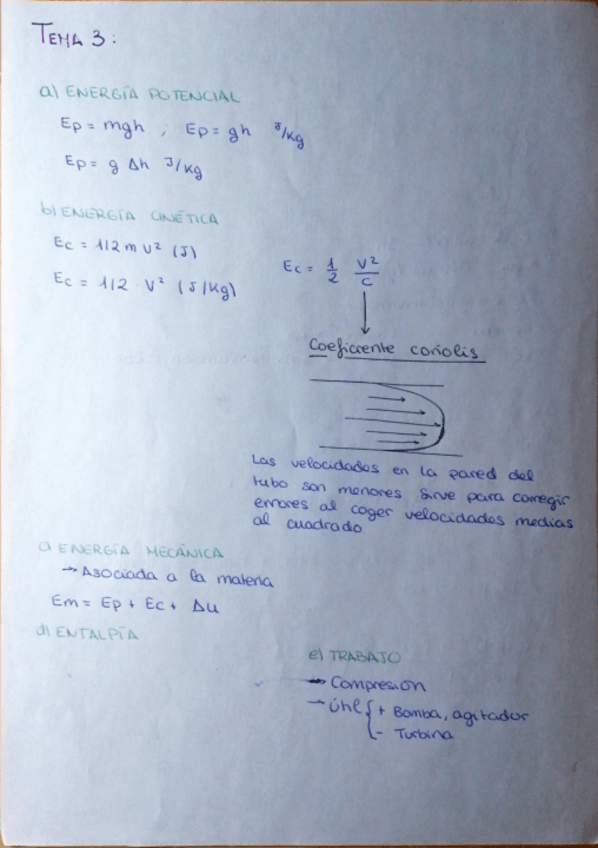 TEMA 3:
a) ENERGÍA POTENCIAL
Ep = mgh ; Ep = gh J/kg
Ep = g Δh J/kg
b) ENERGÍA CINÉTICA
Ec = 1/2 m v² (J)
Ec = 1/2 · v² (J/kg)
Ec = 1/2 v²/c
Coeficiente coriolis
Las velocidades en la pared del
tubo son menores. Sirve para corregir
errores al coger velocidades medias
al cuadrado
c) ENERGÍA MECÁNICA
→ Asociada a la materia
Em = Ep + Ec + Δu
d) ENTALPÍA
e) TRABAJO
→ Compresión
→ Útil { + Bomba, agitador
- Turbina